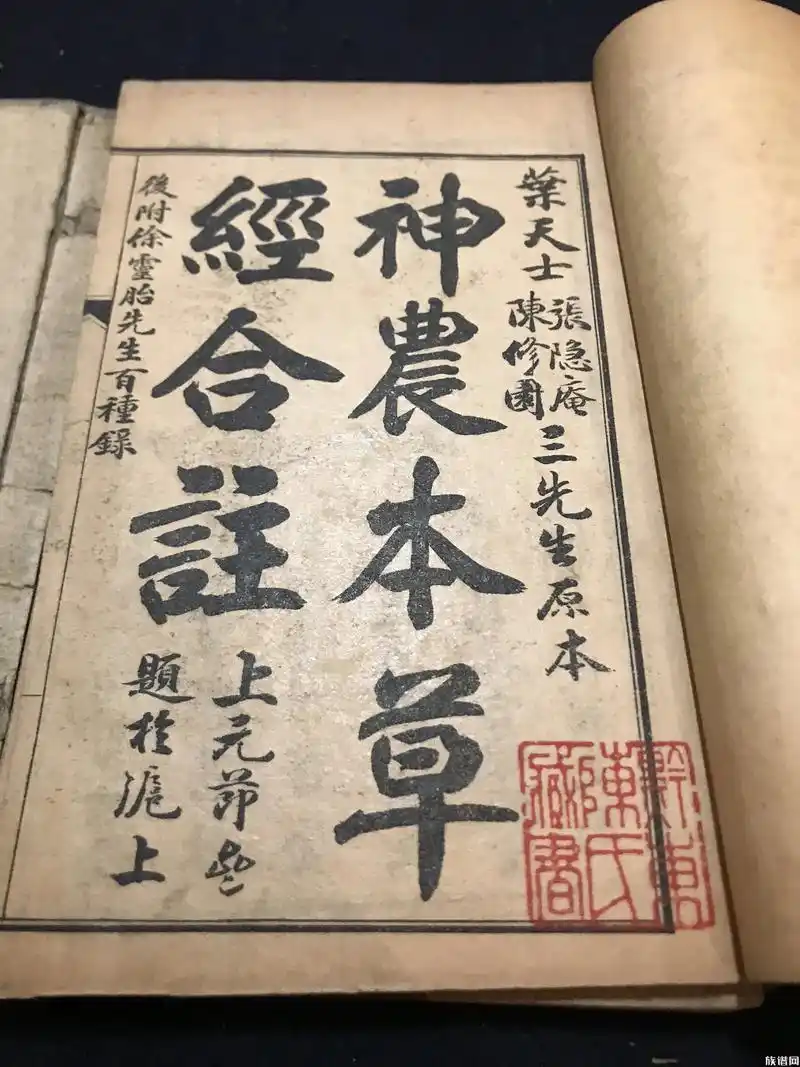 葉天士
張隐庵
陳修園
三先生原本
神農本草
經合註
上元節
題於滬上
後附徐靈胎先生百種錄
黔南
陳氏
藏書
族谱网